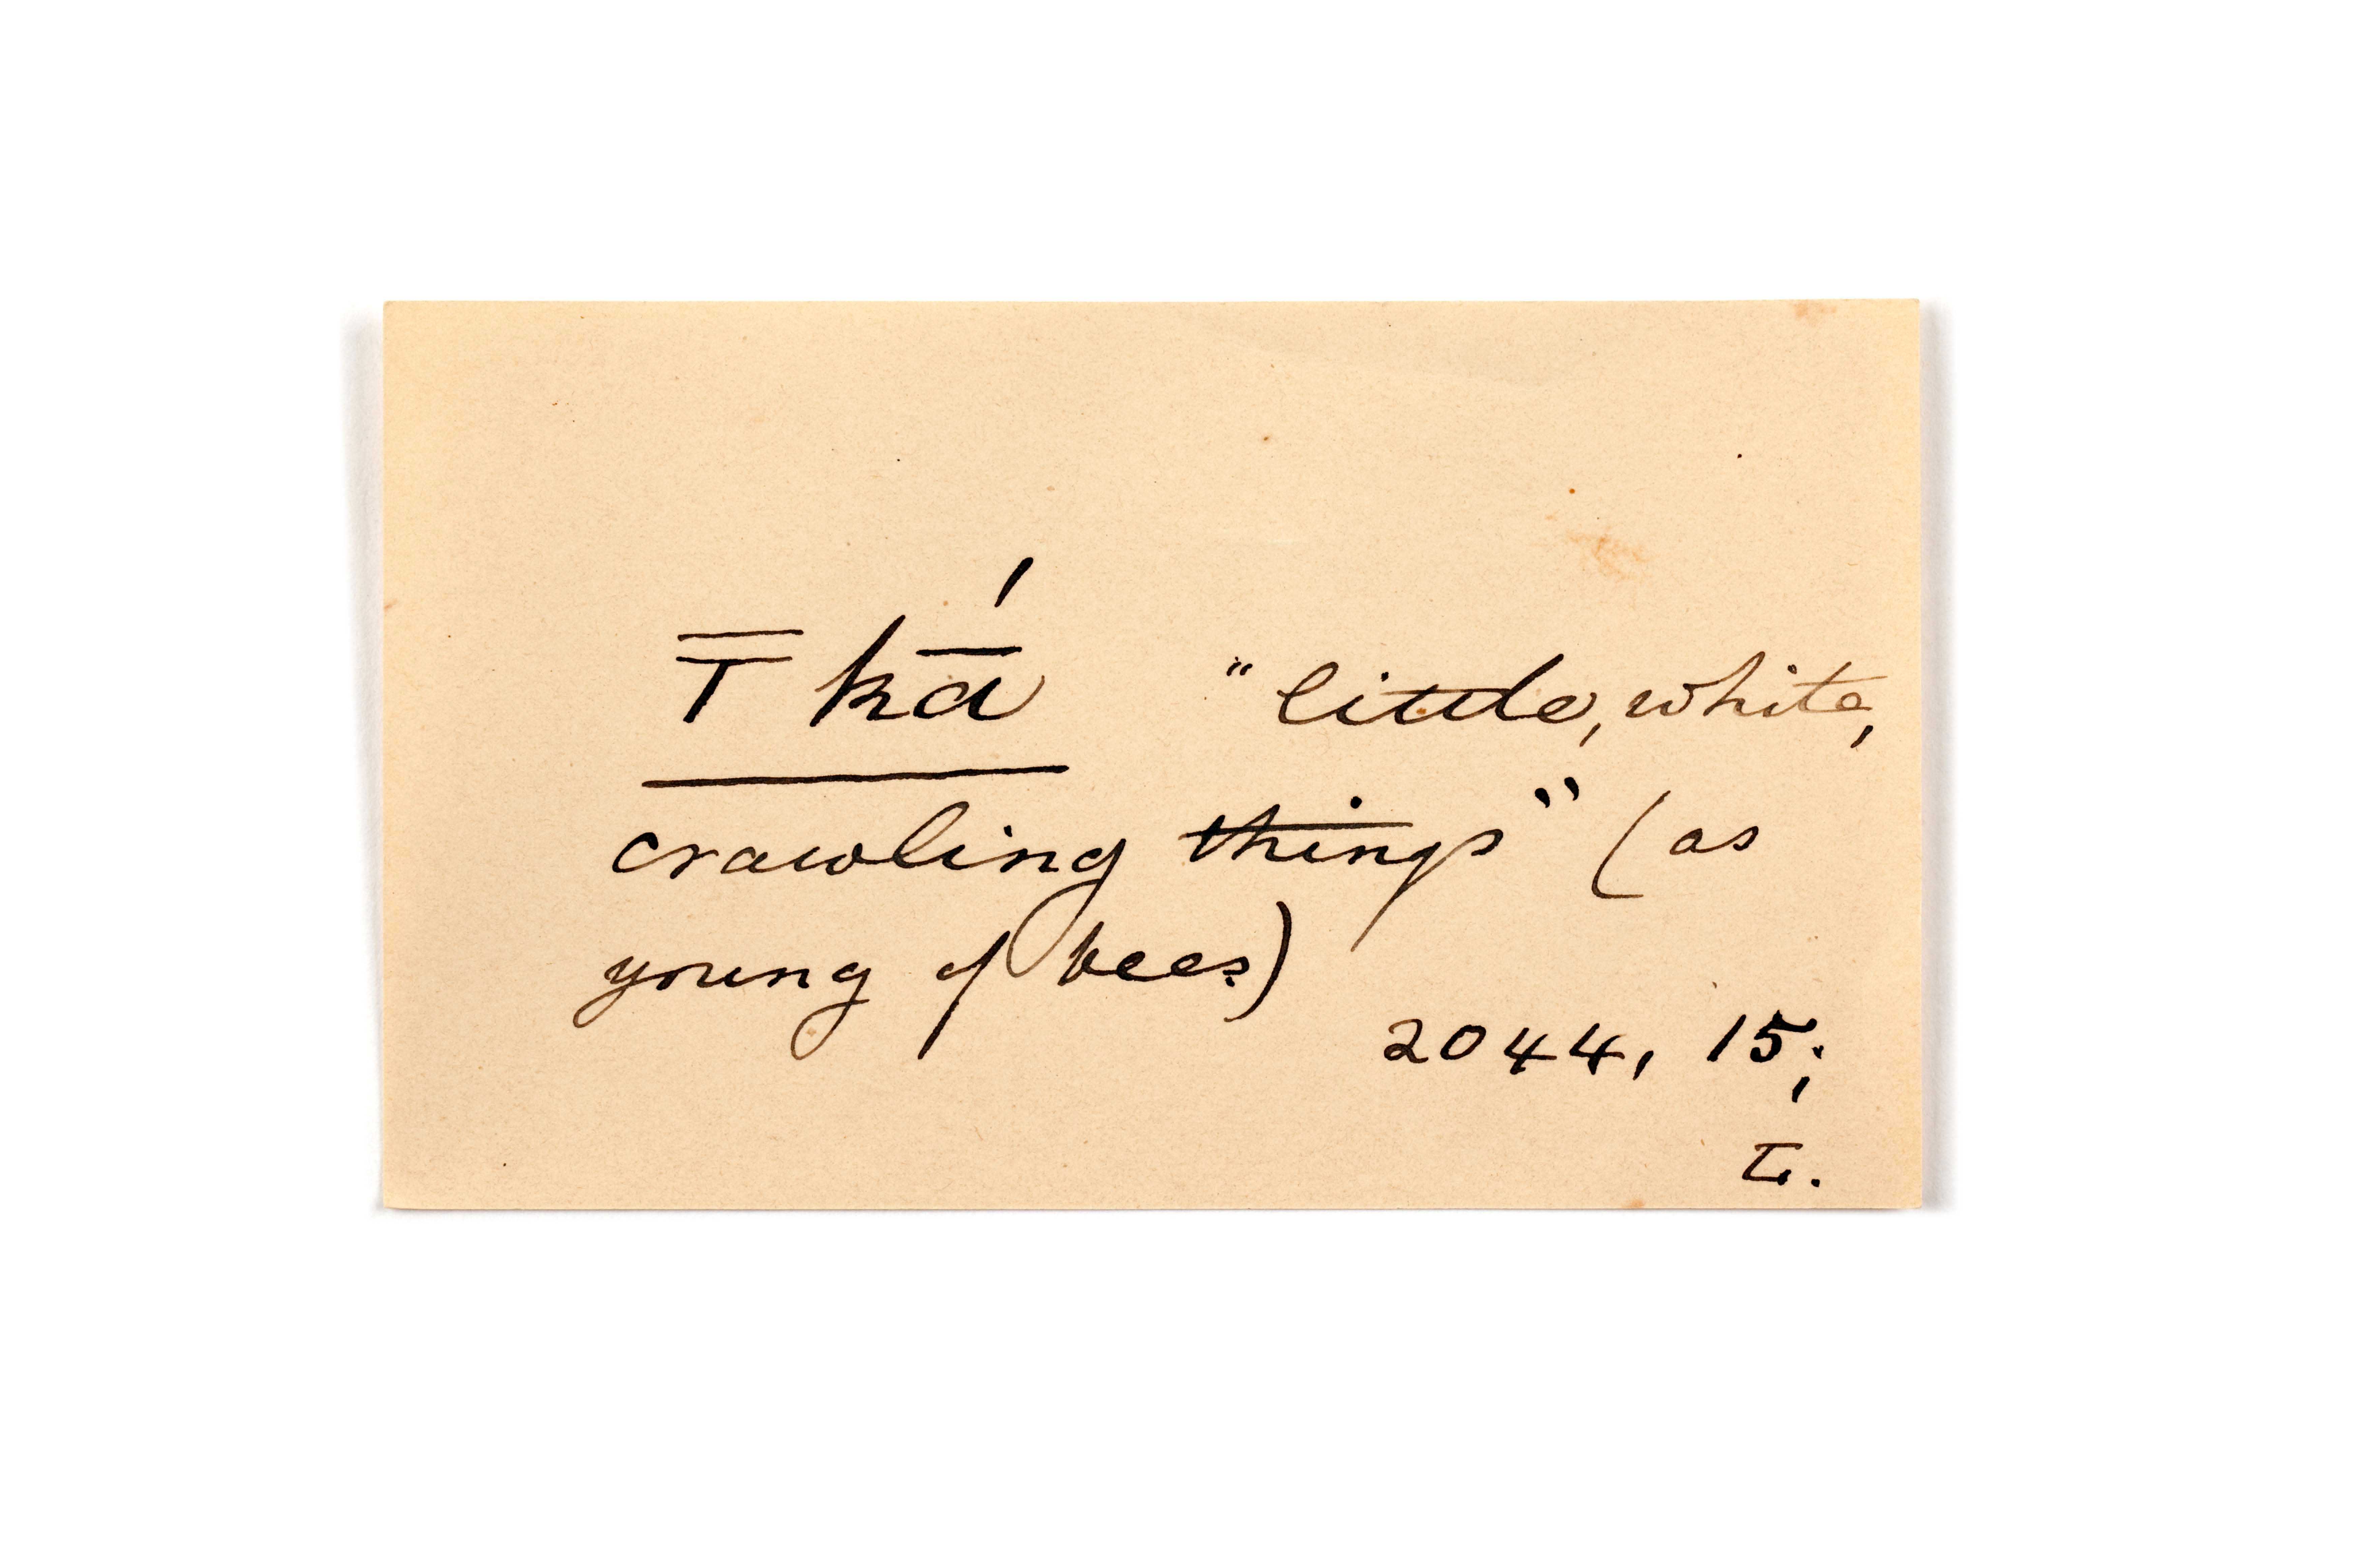 T̄kā́ "little, white,
crawling things" (as
young of bees)
2044, 15;